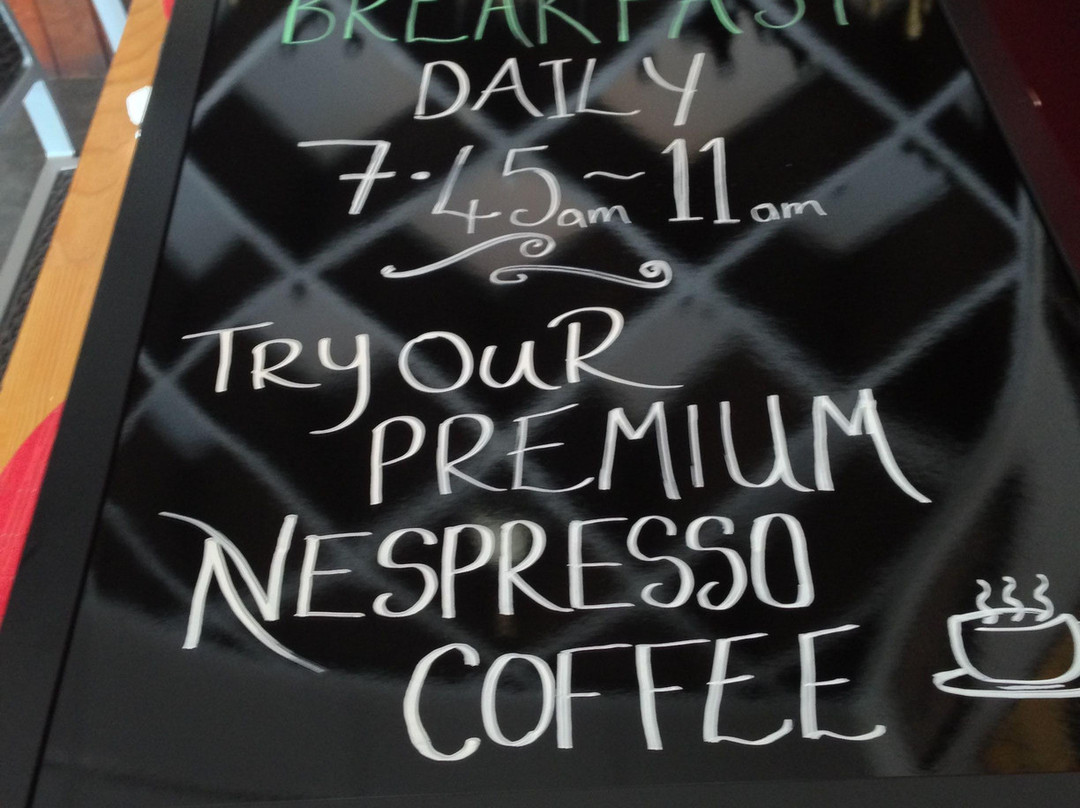 BREAKFAST
DAILY
7.45am ~ 11am
TRY OUR
PREMIUM
NESPRESSO
COFFEE